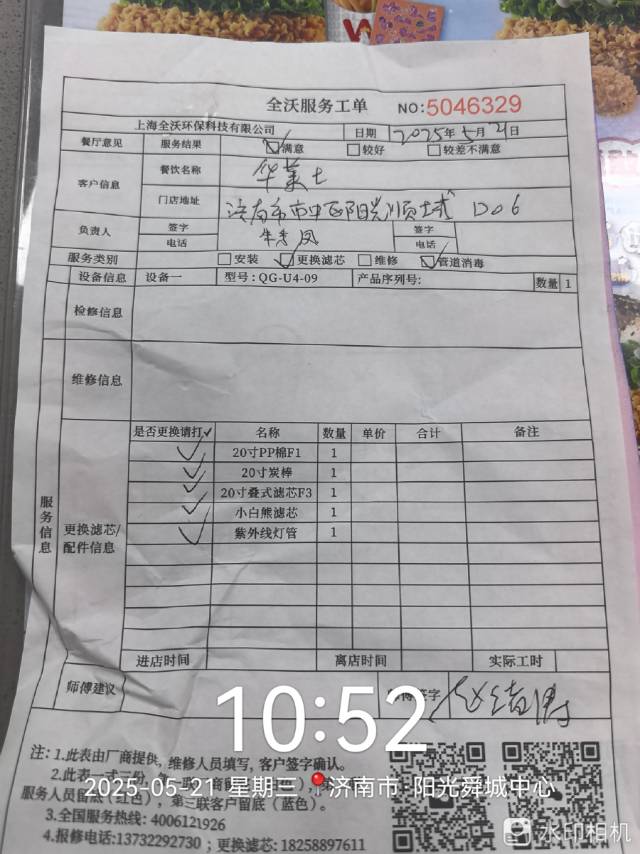 全沃服务工单 NO:5046329
上海全沃环保科技有限公司 日期 2025年5月21日
餐厅意见 服务结果 ☑满意 □较好 □较差不满意
客户信息 餐饮名称 华莱士
门店地址 济南市市中区阳光顺城 D06
负责人 签字 签字
电话 电话
服务类别 □安装 ☑更换滤芯 □维修 ☑管道消毒
设备信息 设备一 型号:QG-U4-09 产品序列号: 数量 1
检修信息
维修信息
服务信息
更换滤芯/配件信息
是否更换请打✓ 名称 数量 单价 合计 备注
✓ 20寸PP棉F1 1
✓ 20寸炭棒 1
✓ 20寸叠式滤芯F3 1
✓ 小白熊滤芯 1
✓ 紫外线灯管 1
进店时间 离店时间 实际工时
师傅建议 签字
10:52
注: 1.此表由厂商提供, 维修人员填写, 客户签字确认。
2.此表一式三份,
2025-05-21 星期三 济南市·阳光舜城中心
服务人员留底(红色), 第三联客户留底(蓝色)。
3.全国服务热线: 4006121926
4.报修电话:13732292730 ; 更换滤芯: 18258897611
水印相机